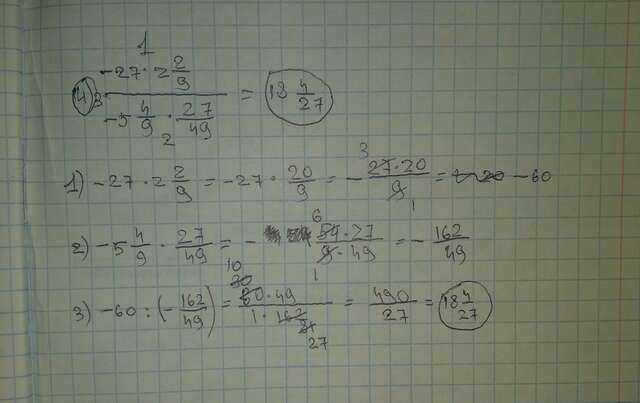 1
-27 · 2 2/9
4) 3 ———— = 18 4/27
-5 4/9 · 27/49
2
1) -27 · 2 2/9 = -27 · 20/9 = - 27·20/9 = -60
3
1
2) -5 4/9 · 27/49 = - 54·27/9·49 = - 162/49
6
1
3) -60 : (- 162/49) = 60·49/1·162 = 490/27 = 18 4/27
10
30
81
27